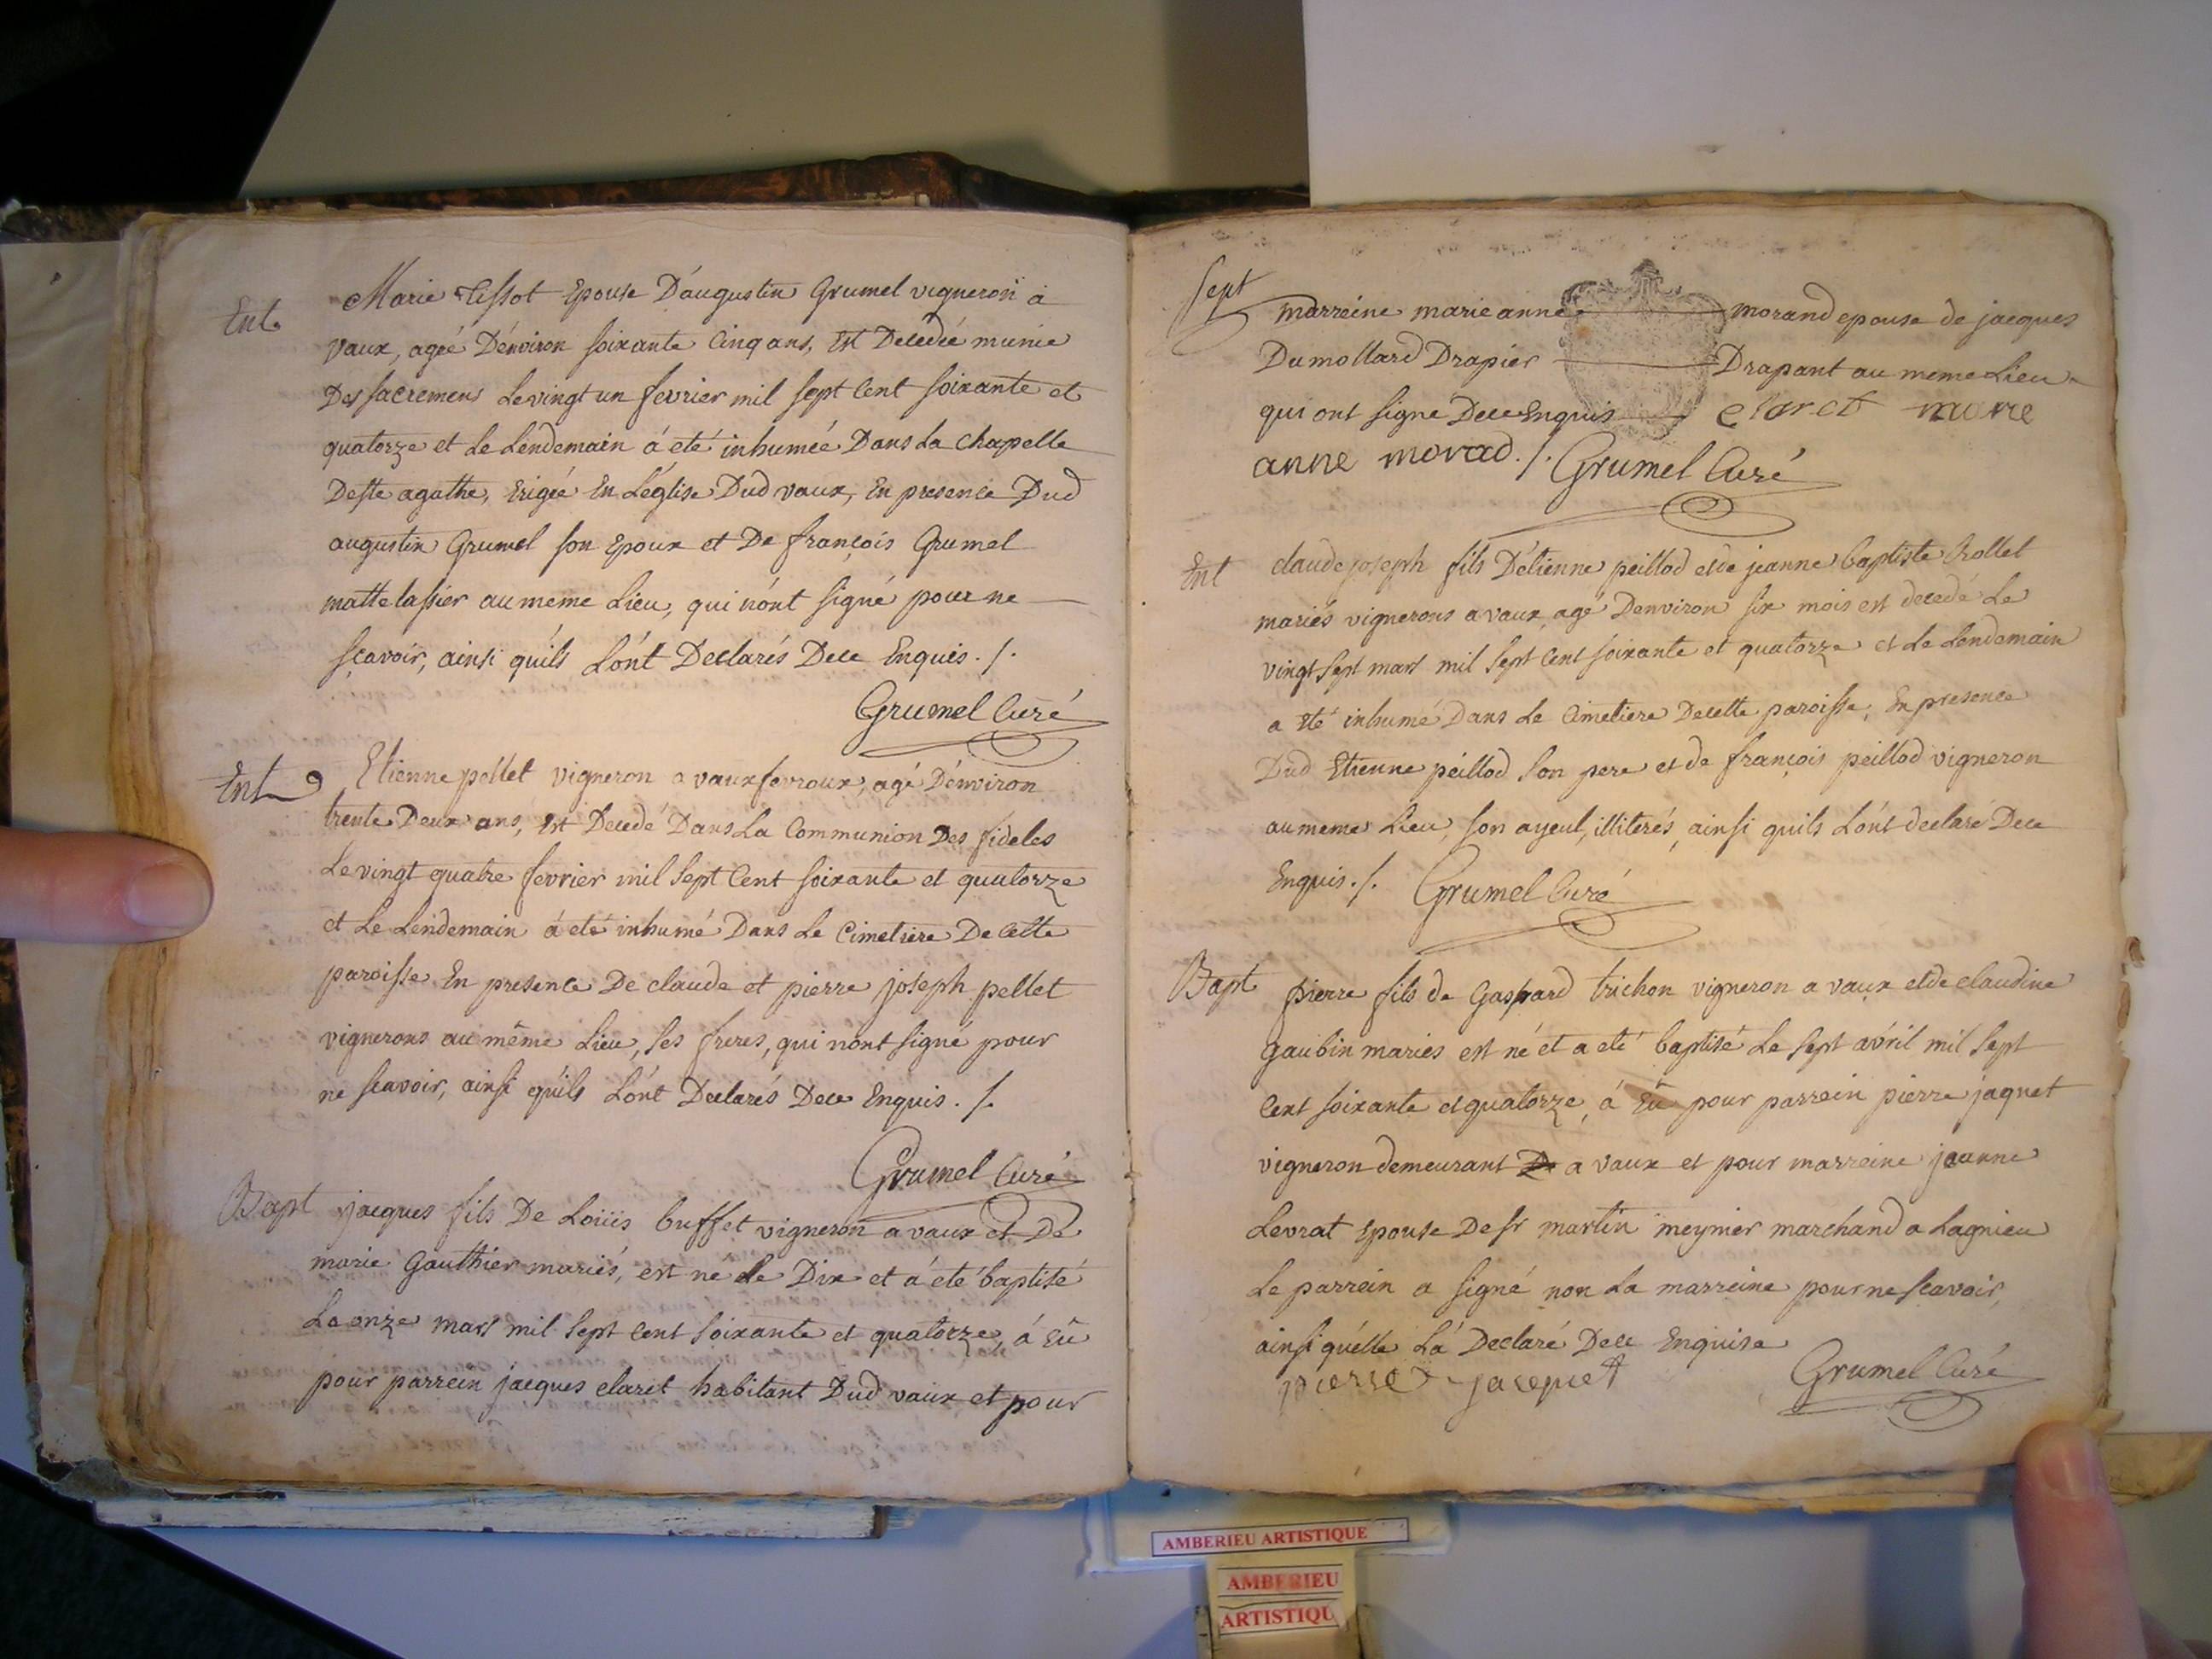 Ent
Marie Tissot Epouse D'augustin Grumel vigneron à
vaux, ageé D'environ soixante Cinq ans, est Decedeé munie
Des sacremens Le vingt un fevrier mil sept Cent soixante et
quatorze et Le Lendemain á eté inhumeé Dans La chapelle
De ste agathe, Erigeé En L'église Dud vaux, En presence Dud
augustin Grumel son Epoux et De françois Grumel
mattelassier au meme Lieu, qui n'ónt signé pour ne
sçavoir, ainsi qu'ils L'ónt Declarés De ce Enquis ./.
Grumel Curé
Ent
Etienne pellet vigneron a vaux fevroux, agé D'environ
trente Deux ans, Est Decedé Dans La Communion Des fideles
Le vingt quatre fevrier mil sept Cent soixante et quatorze
et Le Lendemain á eté inhumé Dans Le Cimetiere De Cette
paroisse En presence De claude et pierre joseph pellet
vignerons au même Lieu, ses freres, qui n'ont signé pour
ne scavoir, ainsi qu'ils L'ónt Declarés De ce Enquis ./.
Grumel Curé
Bapt
jacques fils De Loüis buffet vigneron a vaux et De
marie Gauthier mariés, est né Le Dix et á eté baptisé
Le onze mars mil sept Cent soixante et quatorze, á Eû
pour parrein jacques claret habitant Dud vaux et pour
Sept
marreine marie anne morand epouse de jacques
Dumollard Drapier Drapant au meme Lieu
qui ont signe De ce Enquis claret marie
anne morad ./. Grumel Curé
Ent
claude joseph fils D'etienne peillod et de jeanne baptiste Rollet
mariés vignerons a vaux, agé D'environ six mois est decedé Le
vingt sept mars mil sept Cent soixante et quatorze et Le Lendemain
a eté inhumé Dans Le Cimetiere De cette paroisse, En presence
Dud Etienne peillod son pere et de françois peillod vigneron
au meme Lieu, son ayeul, illiterés, ainsi quils L'ónt declaré De ce
Enquis ./. Grumel Curé
Bapt
pierre fils de Gaspard trichon vigneron a vaux et de claudine
gaubin mariés est né et a eté baptisé Le sept avril mil sept
Cent soixante et quatorze, á Eû pour parrein pierre jaquet
vigneron demeurant a vaux et pour marreine jeanne
Levrat Epouse De sr martin meynier marchand a Lagnieu
Le parrein a signé non La marreine pour ne scavoir,
ainsi qu'elle L'á Declaré De ce Enquise
pierre jacquet Grumel Curé
AMBERIEU ARTISTIQUE
AMBERIEU
ARTISTIQU